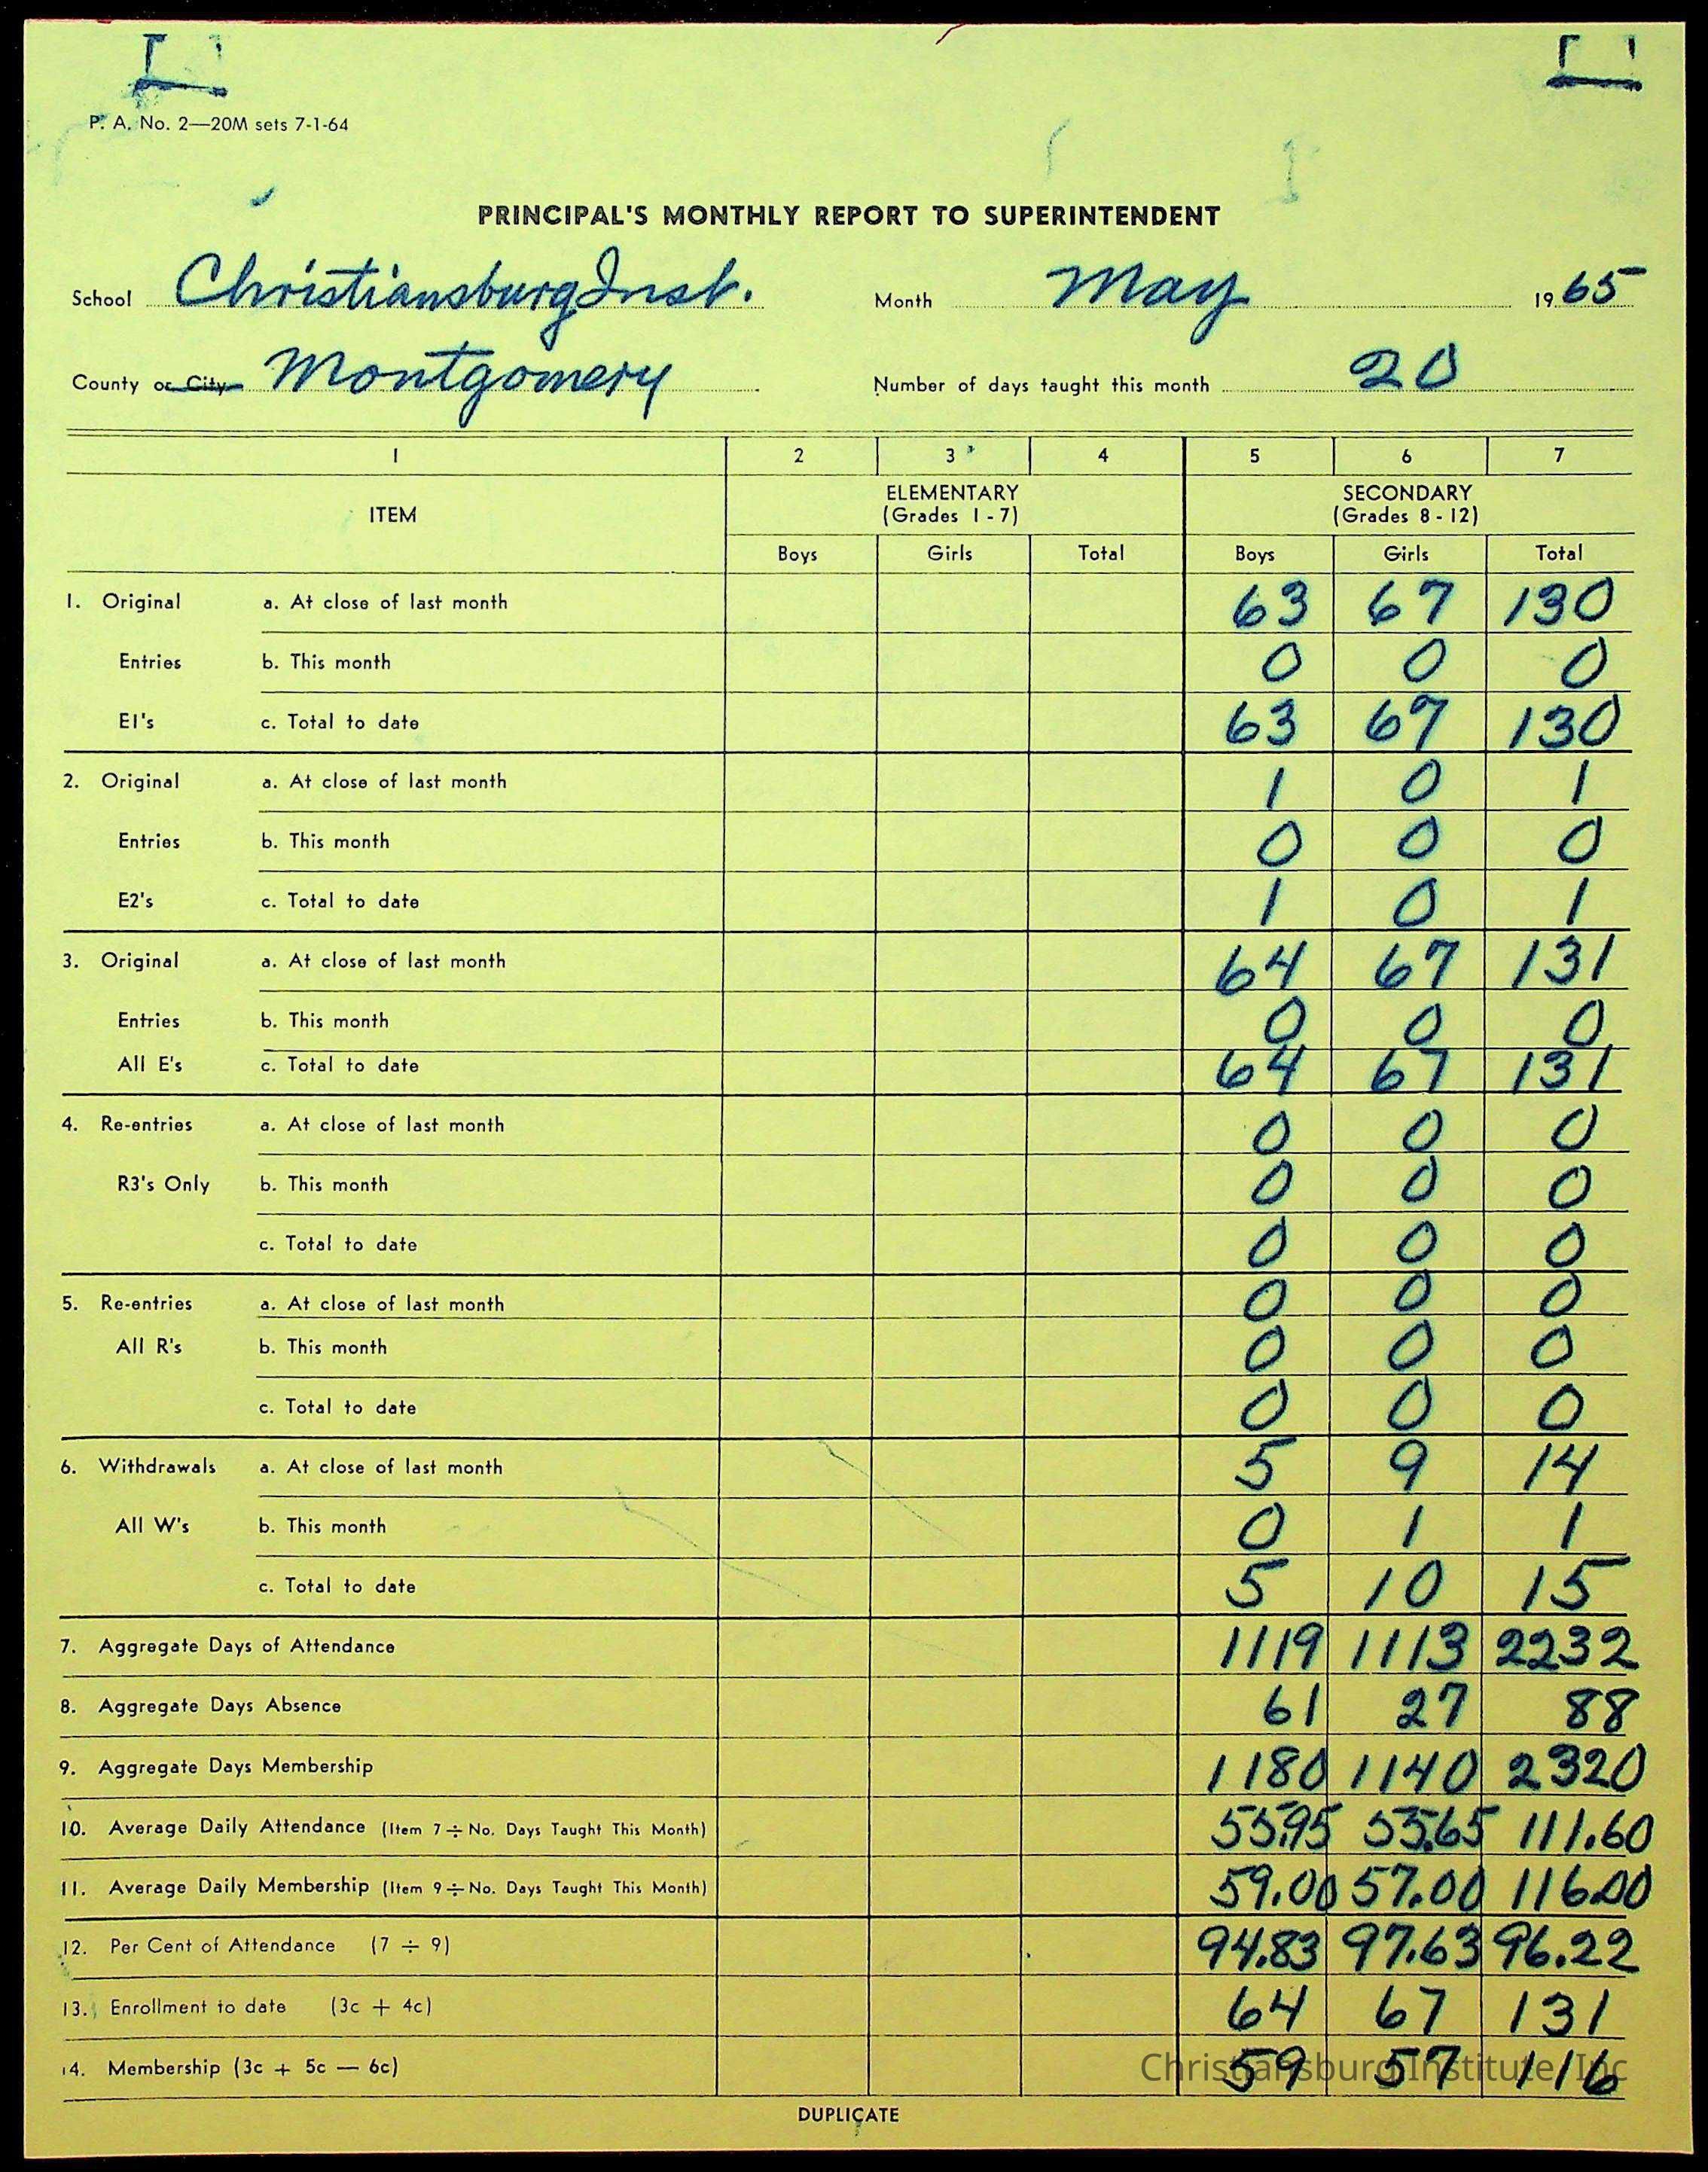 P. A. No. 2—20M sets 7-1-64
PRINCIPAL'S MONTHLY REPORT TO SUPERINTENDENT
School Christiansburg Inst. Month May 1965
County or City Montgomery Number of days taught this month 20
1 2 3 4 5 6 7
ITEM ELEMENTARY (Grades 1 - 7) SECONDARY (Grades 8 - 12)
Boys Girls Total Boys Girls Total
1. Original a. At close of last month 63 67 130
Entries b. This month 0 0 0
E1's c. Total to date 63 67 130
2. Original a. At close of last month 1 0 1
Entries b. This month 0 0 0
E2's c. Total to date 1 0 1
3. Original a. At close of last month 64 67 131
Entries b. This month 0 0 0
All E's c. Total to date 64 67 131
4. Re-entries a. At close of last month 0 0 0
R3's Only b. This month 0 0 0
c. Total to date 0 0 0
5. Re-entries a. At close of last month 0 0 0
All R's b. This month 0 0 0
c. Total to date 0 0 0
6. Withdrawals a. At close of last month 5 9 14
All W's b. This month 0 1 1
c. Total to date 5 10 15
7. Aggregate Days of Attendance 1119 1113 2232
8. Aggregate Days Absence 61 27 88
9. Aggregate Days Membership 1180 1140 2320
10. Average Daily Attendance (Item 7 ÷ No. Days Taught This Month) 55.95 55.65 111.60
11. Average Daily Membership (Item 9 ÷ No. Days Taught This Month) 59.00 57.00 116.00
12. Per Cent of Attendance (7 ÷ 9) 94.83 97.63 96.22
13. Enrollment to date (3c + 4c) 64 67 131
14. Membership (3c + 5c — 6c) 59 57 116
Christiansburg Institute, Inc
DUPLICATE